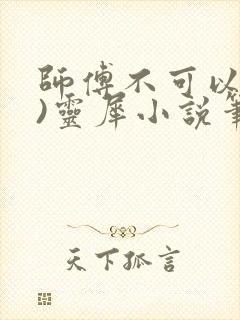 師傅不可以
)靈犀小說筆
天下孤言